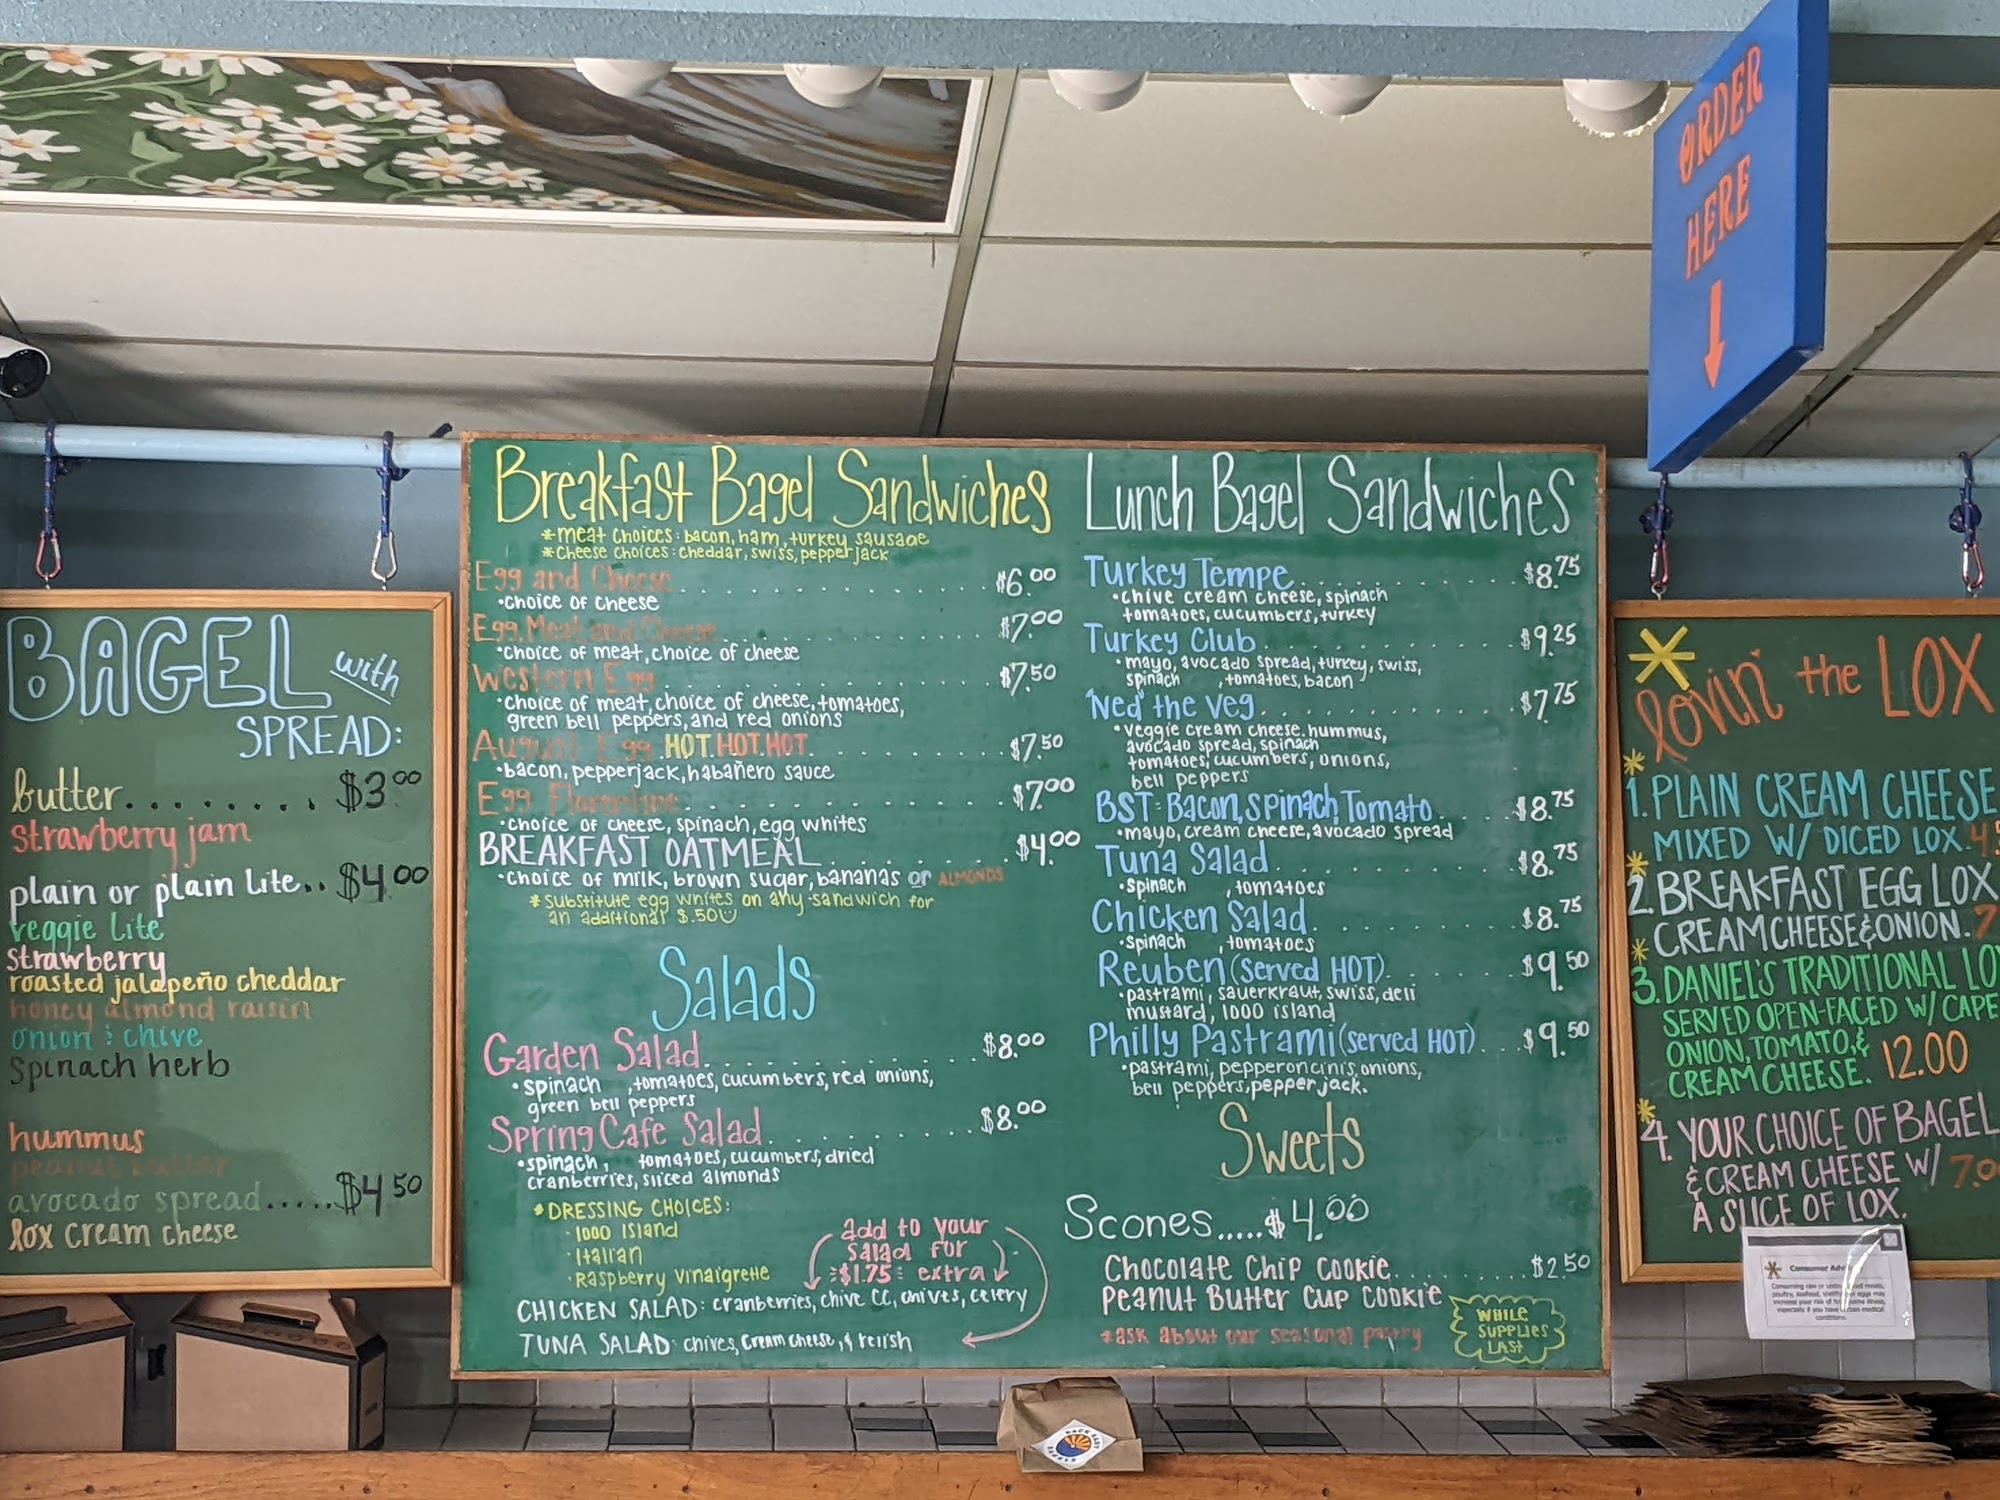 ORDER
HERE
BAGEL with
SPREAD:
butter........ $3.00
strawberry jam
plain or plain Lite.. $4.00
veggie Lite
strawberry
roasted jalapeño cheddar
honey almond raisin
onion & chive
spinach herb
hummus
peanut butter
avocado spread..... $4.50
lox cream cheese
Breakfast Bagel Sandwiches
*Meat choices: bacon, ham, turkey sausage
*Cheese choices: cheddar, swiss, pepper jack
Egg and Cheese . . . . . . . . . . . . . $6.00
•choice of cheese
Egg, Meat and Cheese . . . . . . . . . . . $7.00
•choice of meat, choice of cheese
Western Egg . . . . . . . . . . . . . $7.50
•choice of meat, choice of cheese, tomatoes,
green bell peppers, and red onions
August Egg.HOT.HOT.HOT. . . . . . . . . $7.50
•bacon, pepperjack, habañero sauce
Egg Florentine . . . . . . . . . . . . . $7.00
•choice of cheese, spinach, egg whites
BREAKFAST OATMEAL . . . . . . . . . $4.00
•choice of milk, brown sugar, bananas or ALMONDS
*substitute egg whites on any sandwich for
an additional $.50
Salads
Garden Salad . . . . . . . . . . . . $8.00
•spinach ,tomatoes, cucumbers, red onions,
green bell peppers
Spring Cafe Salad . . . . . . . . . $8.00
•spinach, tomatoes, cucumbers, dried
cranberries, sliced almonds
*DRESSING CHOICES:
•1000 Island
•Italian
•Raspberry Vinaigrette
add to your
salad for
$1.75 extra
CHICKEN SALAD: cranberries, chive CC, chives, celery
TUNA SALAD: chives, cream cheese, & relish
Lunch Bagel Sandwiches
Turkey Tempe . . . . . . . . . . . $8.75
•chive cream cheese, spinach
tomatoes, cucumbers, turkey
Turkey Club . . . . . . . . . . . . $9.25
•mayo, avocado spread, turkey, swiss,
spinach ,tomatoes, bacon
"Ned" the Veg . . . . . . . . . . . . $7.75
•veggie cream cheese, hummus,
avocado spread, spinach
tomatoes, cucumbers, onions,
bell peppers
BST: Bacon, Spinach, Tomato . . . $8.75
•mayo, cream cheese, avocado spread
Tuna Salad . . . . . . . . . . . . $8.75
•spinach ,tomatoes
Chicken Salad . . . . . . . . . . $8.75
•spinach ,tomatoes
Reuben (served HOT) . . . . . . . $9.50
•pastrami, sauerkraut, swiss, deli
mustard, 1000 island
Philly Pastrami (served HOT) . . . $9.50
•pastrami, pepperoncinis, onions,
bell peppers, pepper jack.
Sweets
Scones..... $4.00
Chocolate Chip Cookie . . . . . . . $2.50
Peanut Butter Cup Cookie
*ask about our seasonal pastry
WHILE
SUPPLIES
LAST
lovin' the LOX
1. PLAIN CREAM CHEESE
MIXED W/ DICED LOX.
2. BREAKFAST EGG LOX
CREAM CHEESE & ONION.
3. DANIEL'S TRADITIONAL
SERVED OPEN-FACED W/
ONION, TOMATO, &
CREAM CHEESE. 12.00
4. YOUR CHOICE OF BAGEL
& CREAM CHEESE W/ 7.0
A SLICE OF LOX.
Consumer